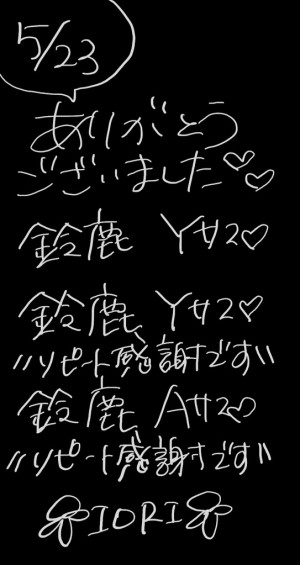 5/23
ありがとう
ございました♡♡
鈴鹿 Yサ2♡
鈴鹿 Yサ2♡
〃リピート感謝です〃
鈴鹿 Aサ2♡
〃リピート感謝です〃
IORI